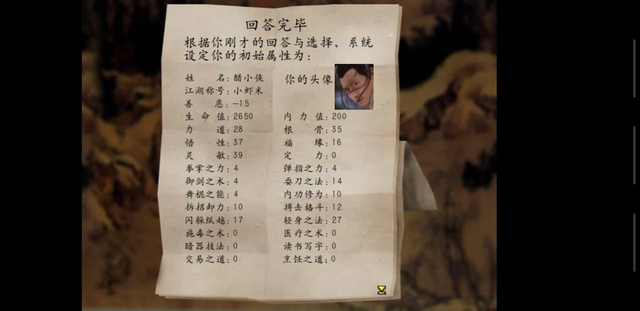 回答完毕
根据你刚才的回答与选择，系统
设定你的初始属性为：
姓名：醋小侠 你的头像
江湖称号：小虾米
善恶：-15
生命值：2650 内力值：200
力道：28 根骨：35
悟性：37 福缘：16
灵敏：39 定力：0
拳掌之力：4 弹指之力：4
御剑之术：4 耍刀之法：14
舞棍之能：4 内功修为：10
拆招卸力：10 搏击格斗：12
闪躲纵越：17 轻身之法：27
施毒之术：0 医疗之术：0
暗器技法：0 读书写字：0
交易之道：0 烹饪之道：0